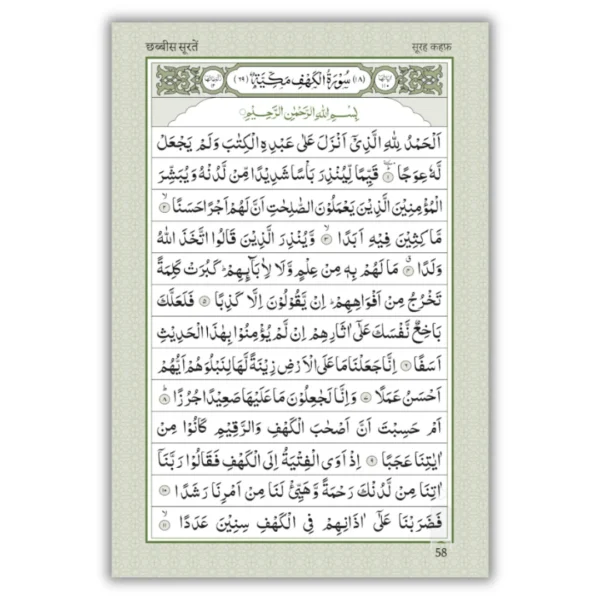 छब्बीस सूरतें
सूरह कहफ़
(١٨) سُوْرَةُ الْكَهْفِ مَكِّيَّةٌ (٦٩)
بِسْمِ اللهِ الرَّحْمٰنِ الرَّحِيْمِ
اَلْحَمْدُ لِلّٰهِ الَّذِيْٓ اَنْزَلَ عَلٰى عَبْدِهِ الْكِتٰبَ وَلَمْ يَجْعَلْ
لَّهٗ عِوَجًا ۝١ قَيِّمًا لِّيُنْذِرَ بَاْسًا شَدِيْدًا مِّنْ لَّدُنْهُ وَيُبَشِّرَ
الْمُؤْمِنِيْنَ الَّذِيْنَ يَعْمَلُوْنَ الصّٰلِحٰتِ اَنَّ لَهُمْ اَجْرًا حَسَنًا ۝٢
مَّاكِثِيْنَ فِيْهِ اَبَدًا ۝٣ وَّيُنْذِرَ الَّذِيْنَ قَالُوا اتَّخَذَ اللهُ
وَلَدًا ۝٤ مَا لَهُمْ بِهٖ مِنْ عِلْمٍ وَّلَا لِاٰبَآئِهِمْ ؕ كَبُرَتْ كَلِمَةً
تَخْرُجُ مِنْ اَفْوَاهِهِمْ ؕ اِنْ يَّقُوْلُوْنَ اِلَّا كَذِبًا ۝٥ فَلَعَلَّكَ
بَاخِعٌ نَّفْسَكَ عَلٰٓى اٰثَارِهِمْ اِنْ لَّمْ يُؤْمِنُوْا بِهٰذَا الْحَدِيْثِ
اَسَفًا ۝٦ اِنَّا جَعَلْنَا مَا عَلَى الْاَرْضِ زِيْنَةً لَّهَا لِنَبْلُوَهُمْ اَيُّهُمْ
اَحْسَنُ عَمَلًا ۝٧ وَاِنَّا لَجٰعِلُوْنَ مَا عَلَيْهَا صَعِيْدًا جُرُزًا ۝٨
اَمْ حَسِبْتَ اَنَّ اَصْحٰبَ الْكَهْفِ وَالرَّقِيْمِ كَانُوْا مِنْ
اٰيٰتِنَا عَجَبًا ۝٩ اِذْ اَوَى الْفِتْيَةُ اِلَى الْكَهْفِ فَقَالُوْا رَبَّنَآ
اٰتِنَا مِنْ لَّدُنْكَ رَحْمَةً وَّهَيِّئْ لَنَا مِنْ اَمْرِنَا رَشَدًا ۝١٠
فَضَرَبْنَا عَلٰٓى اٰذَانِهِمْ فِي الْكَهْفِ سِنِيْنَ عَدَدًا ۝١١
58